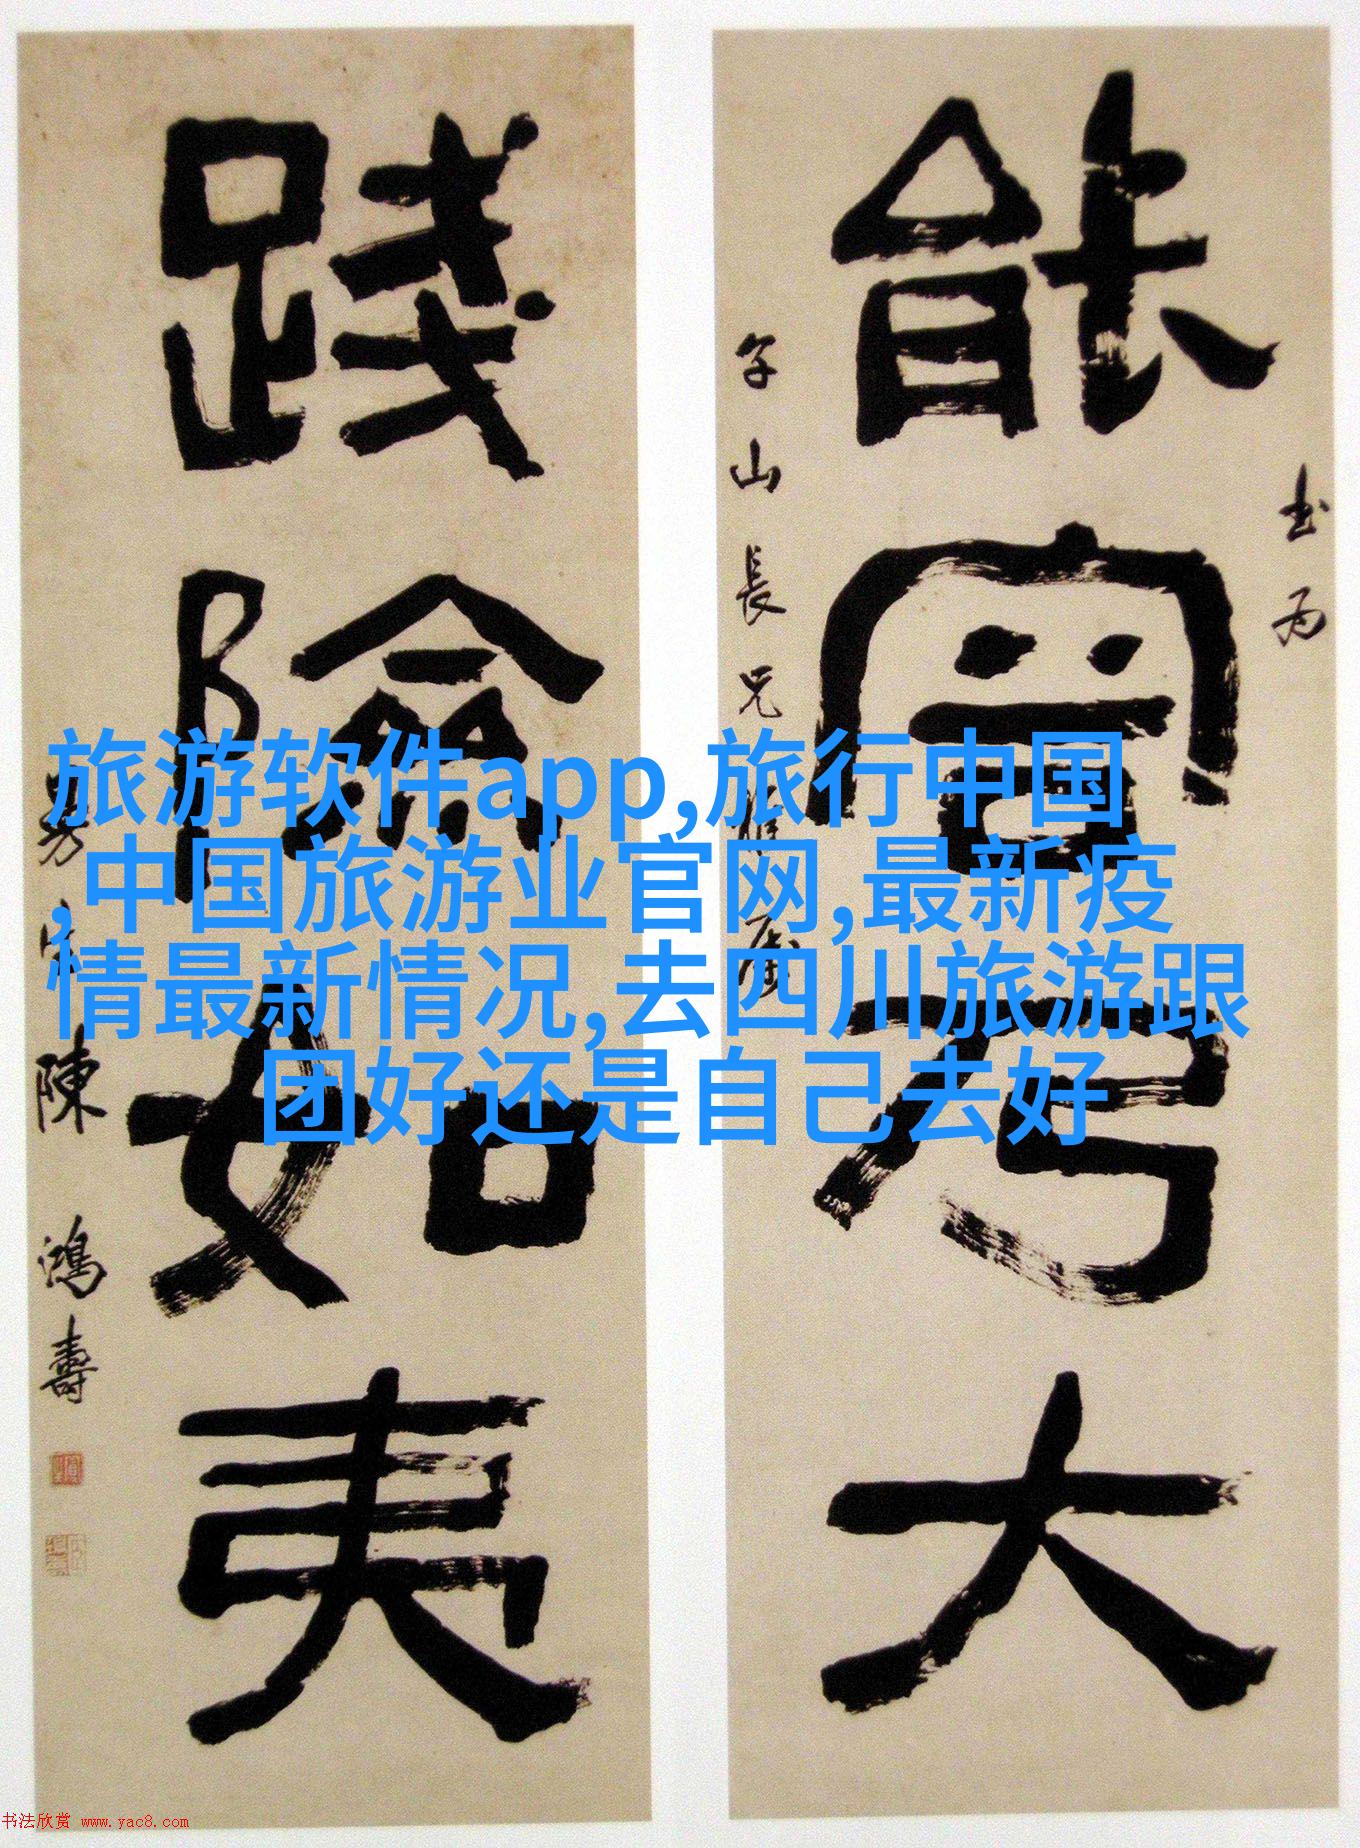 书为
能容乃大
山長兄
踐險如夷
陳鴻壽
旅游软件app,旅行中国
,中国旅游业官网,最新疫
情最新情况,去四川旅游跟
团好还是自己去好
书法欣赏 www.yac8.com